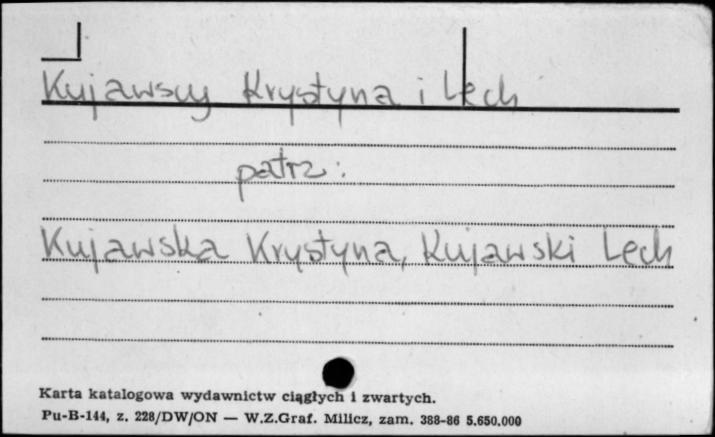 Kujawscy Krystyna i Lech
patrz:
Kujawska Krystyna, Kujawski Lech
Karta katalogowa wydawnictw ciągłych i zwartych.
Pu-B-144, z. 228/DW/ON — W.Z.Graf. Milicz, zam. 388-86 5.650.000